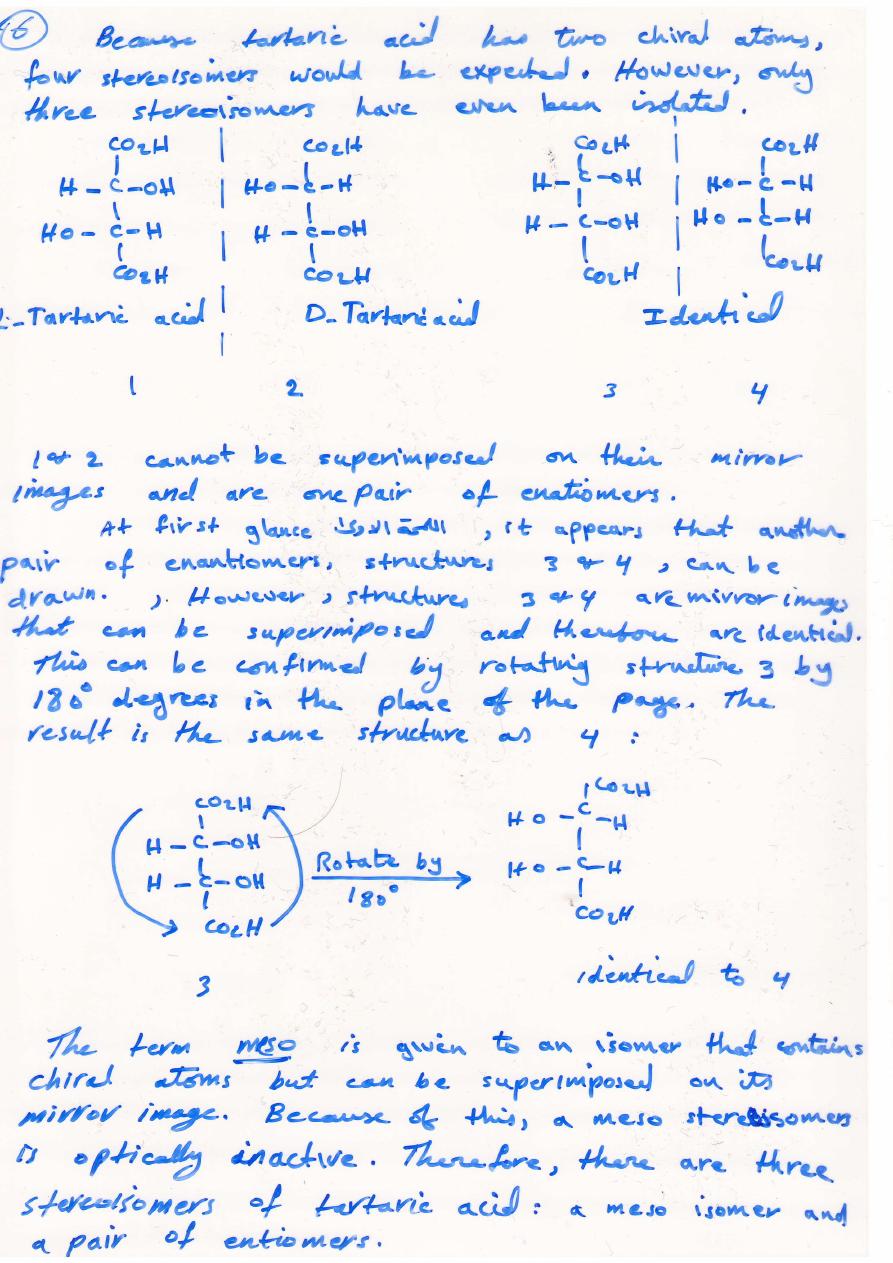 46
Because tartaric acid has two chiral atoms,
four stereoisomers would be expected. However, only
three stereoisomers have even been isolated.
CO2H CO2H CO2H CO2H
H - C - OH HO - C - H H - C - OH HO - C - H
HO - C - H H - C - OH H - C - OH HO - C - H
CO2H CO2H CO2H CO2H
L-Tartaric acid D-Tartaric acid Identical
1 2 3 4
1 & 2 cannot be superimposed on their mirror
images and are one pair of enatiomers.
At first glance, it appears that another
pair of enantiomers, structures 3 & 4, can be
drawn. , However, structures 3 & 4 are mirror images
that can be superimposed and therefore are identical.
This can be confirmed by rotating structure 3 by
180° degrees in the plane of the page. The
result is the same structure as 4 :
CO2H CO2H
H - C - OH HO - C - H
Rotate by
H - C - OH HO - C - H
180°
CO2H CO2H
3 identical to 4
The term meso is given to an isomer that contains
chiral atoms but can be superimposed on its
mirror image. Because of this, a meso stereoisomers
is optically inactive. Therefore, there are three
stereoisomers of tartaric acid: a meso isomer and
a pair of entiomers.